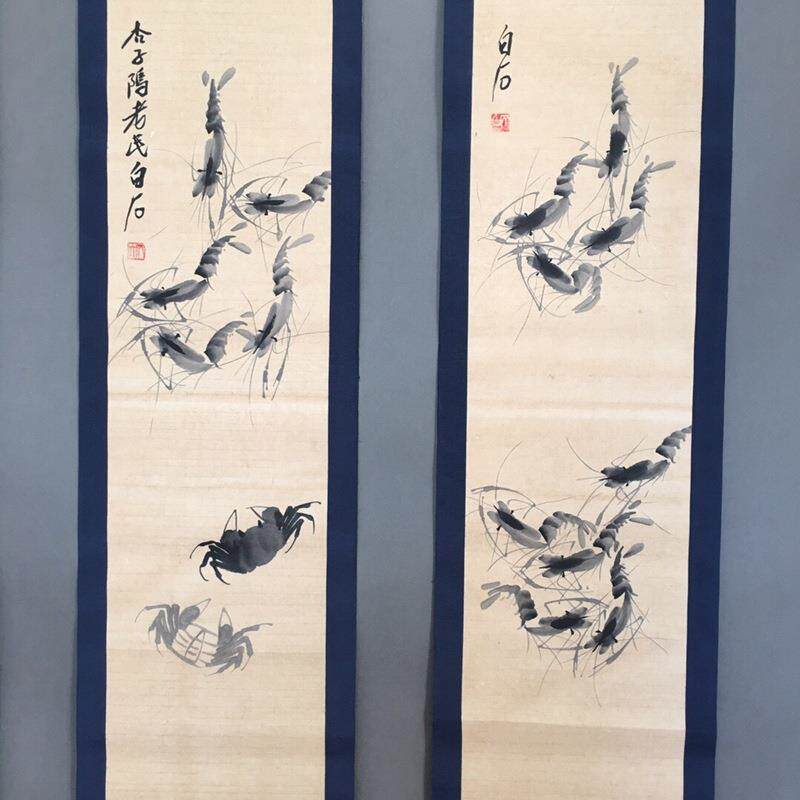 杏子隖老民白石
白石